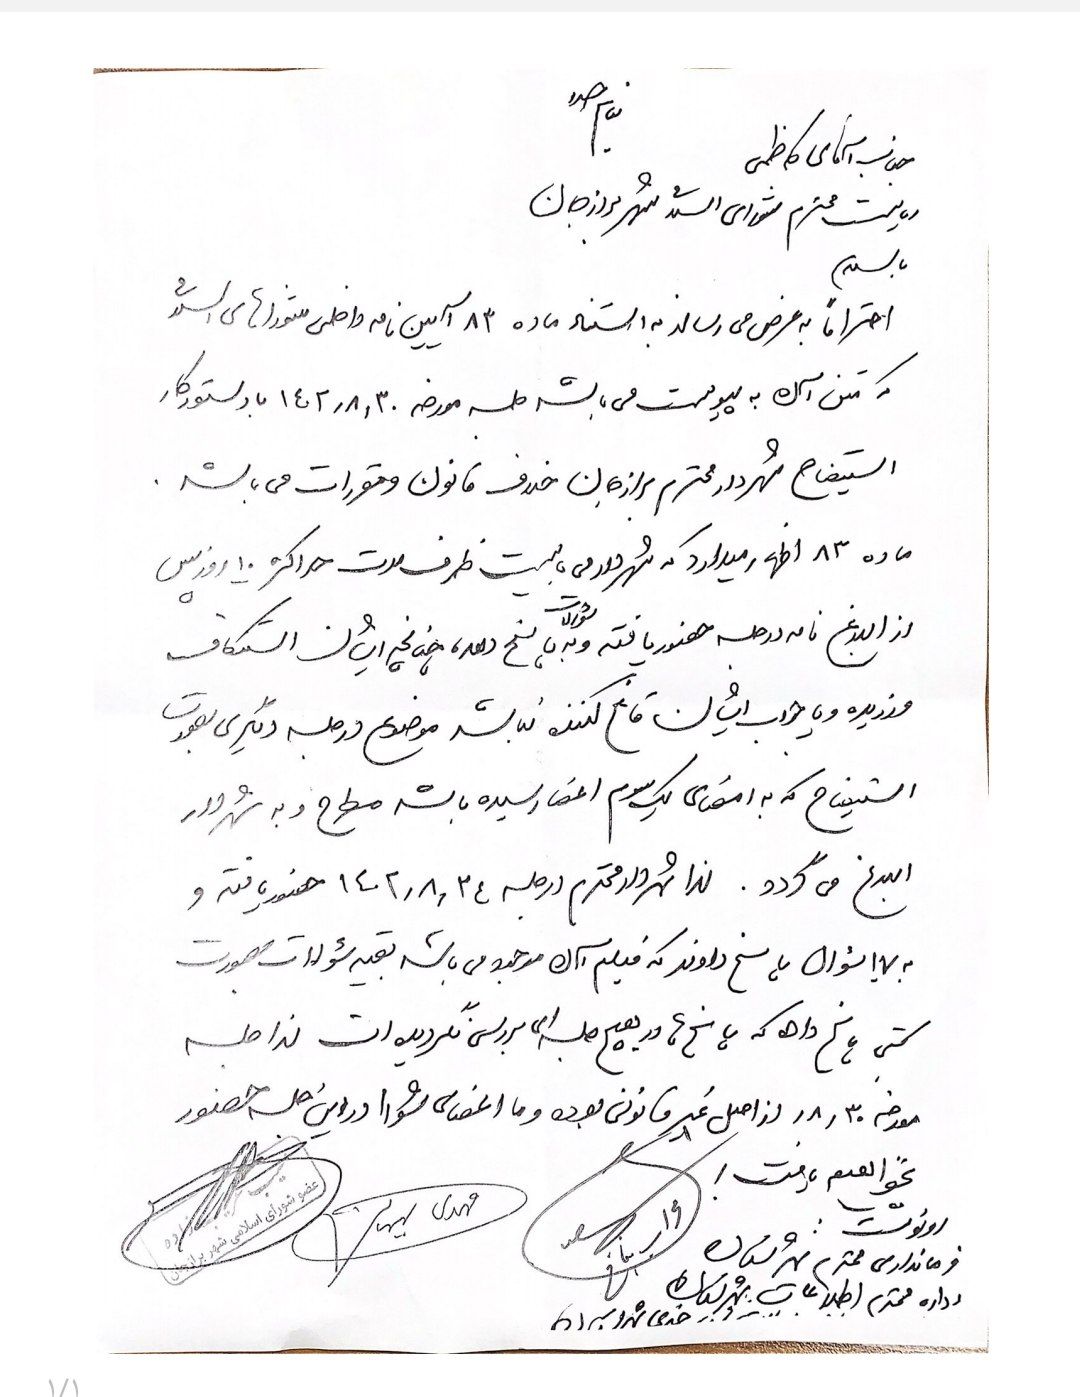 بنام خدا
جناب آقای کاظمی
ریاست محترم شورای اسلامی شهر برازجان
با سلام
احتراماً به عرض می رساند به استناد ماده ۸۳ آیین نامه داخلی شوراهای اسلامی
که متن آن به پیوست می باشد جلسه مورخه ۱۴۰۲/۸/۳۰ با دستور کار
استیضاح شهردار محترم برازجان خلاف قانون و مقررات می باشد .
ماده ۸۳ اظهار میدارد که شهردار می بایست ظرف مدت حداکثر ۱۰ روز پس
از ابلاغ نامه در جلسه حضور یافته و به سوالات پاسخ دهد، چنانچه ایشان استنکاف
ورزیده و یا جواب ایشان قانع کننده نباشد موضوع در جلسه دیگری بصورت
استیضاح که به امضای یک سوم اعضا رسیده باشد مطرح و به شهردار
ابلاغ می گردد . لذا شهردار محترم در جلسه ۱۴۰۲/۸/۲۴ حضور یافته و
به ۱۷ سوال پاسخ دادند که فیلم آن موجود می باشد بقیه سوالات بصورت
کتبی پاسخ داده که پاسخ ها در هیچ جلسه ای بررسی نگردیده است لذا جلسه
مورخه ۸/۳۰ از اصل غیر قانونی بوده و ما اعضای شورا در این جلسه حضور
نخواهیم یافت !
مهدی
عضو شورای اسلامی شهر برازجان
رونوشت :
فرمانداری محترم شهرستان
اداره محترم اطلاعات شهرستان